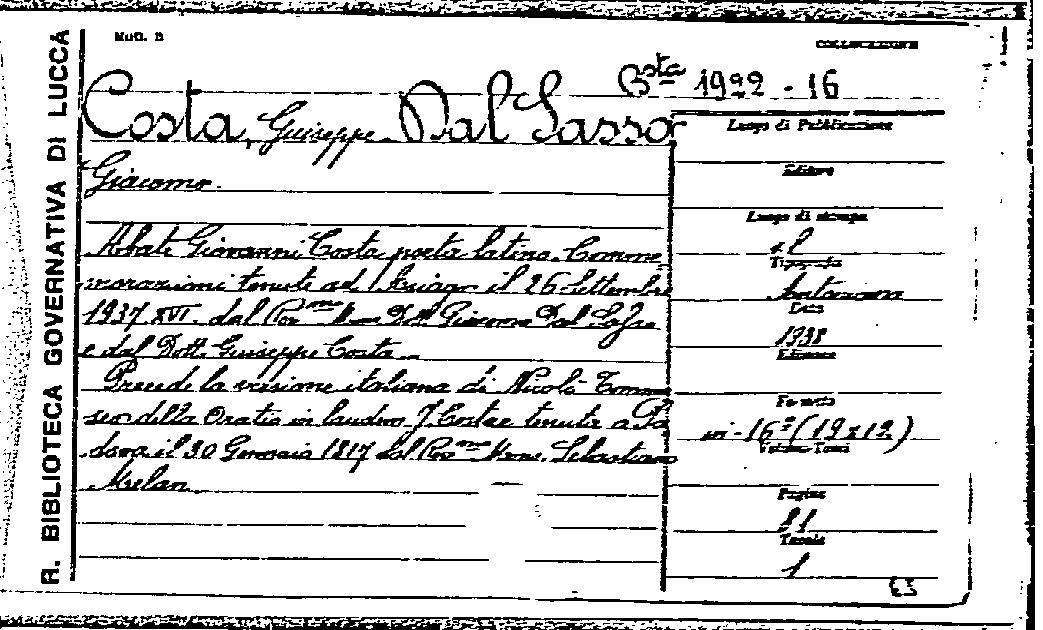 R. BIBLIOTECA GOVERNATIVA DI LUCCA
MOD. B
COLLOCAZIONE
Bsta 1922 - 16
Costa, Giuseppe Dal Sasso
Giacomo.
Abate Giovanni Costa poeta latino. Comme
morazioni tenute ad Asiago il 26 Settembre
1937 XVI. dal Rev.mo Mons. Dott. Giacomo Dal Sasso
e dal Dott. Giuseppe Costa.
Precede la versione italiana di Nicolò Tomma
seo della Oratio in laudem J. Costae tenuta a Pa
dova il 30 Gennaio 1817 dal Rev.mo Mons. Sebastiano
Melan.
Luogo di Pubblicazione
Editore
Luogo di stampa
Tipografia
Data
1938
Edizione
Formato
in-16° (19x12)
Volumi Tomi
Pagine
21
Tavole
1